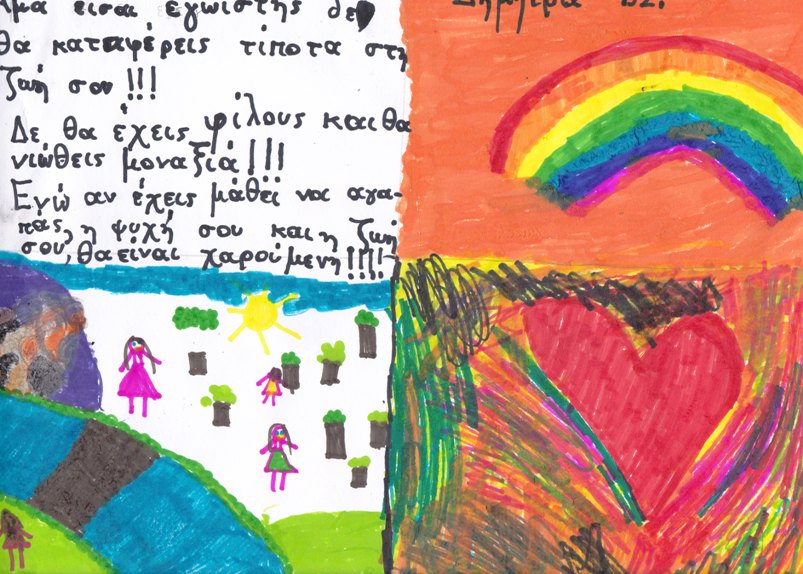 είσαι εγωιστής δε
θα καταφέρεις τίποτα στη
ζωή σου!!!
Δε θα έχεις φίλους και θα
νιώθεις μοναξιά!!!
Ενώ αν έχεις μάθει να αγα-
πάς, η ψυχή σου και η ζωή
σου, θα είναι χαρούμενη!!!!